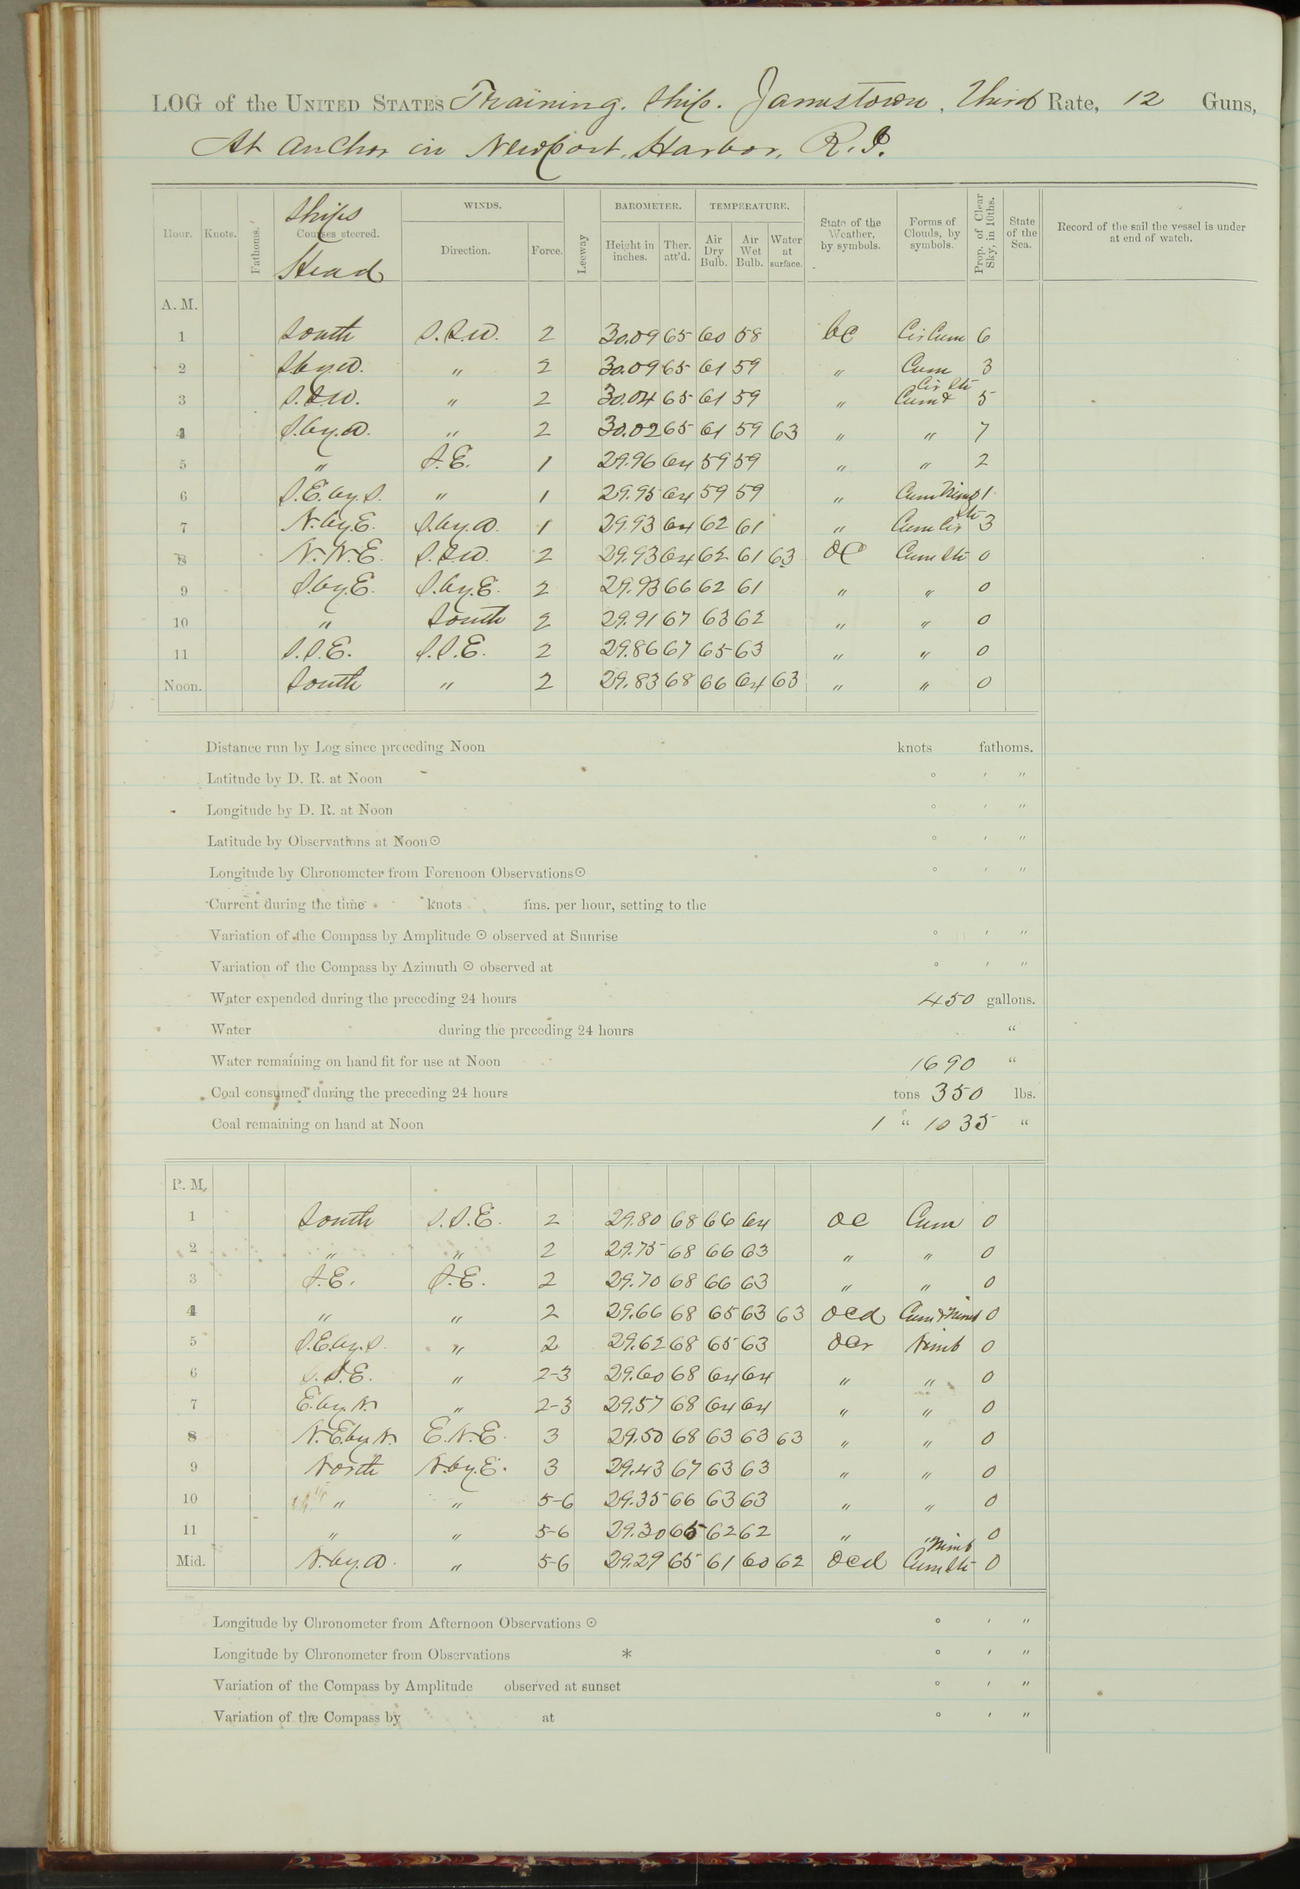 LOG of the UNITED STATES Training Ship Jamestown, Third Rate, 12 Guns,
At anchor in Newport Harbor, R.I.
Hour. Knots. Fathoms. Ships Courses steered. Head WINDS. Direction. Force. Leeway BAROMETER. Height in inches. Ther. att'd. TEMPERATURE. Air Dry Bulb. Air Wet Bulb. Water at surface. State of the Weather, by symbols. Forms of Clouds, by symbols. Prop. of Clear Sky, in 10ths. State of the Sea. Record of the sail the vessel is under at end of watch.
A. M.
1 South S.S.W. 2 30.09 65 60 58 bc Cir Cum 6
2 S.by.W. " 2 30.09 65 61 59 " Cum 3
3 S.S.W. " 2 30.04 65 61 59 " Cum & Cir Str 5
4 S.by.W. " 2 30.02 65 61 59 63 " " 7
5 " S.E. 1 29.96 64 59 59 " " 2
6 S.E.by.S. " 1 29.95 64 59 59 " Cum Nimb 1
7 N.by.E. S.by.W. 1 29.93 64 62 61 " Cum Cir Str 3
8 N.N.E. S.S.W. 2 29.93 64 62 61 63 oc Cum Str 0
9 S.by.E. S.by.E. 2 29.93 66 62 61 " " 0
10 " South 2 29.91 67 63 62 " " 0
11 S.S.E. S.S.E. 2 29.86 67 65 63 " " 0
Noon. South " 2 29.83 68 66 64 63 " " 0
Distance run by Log since preceding Noon knots fathoms.
Latitude by D. R. at Noon ° ′ ″
Longitude by D. R. at Noon ° ′ ″
Latitude by Observations at Noon ☉ ° ′ ″
Longitude by Chronometer from Forenoon Observations ☉ ° ′ ″
Current during the time knots fms. per hour, setting to the
Variation of the Compass by Amplitude ☉ observed at Sunrise ° ′ ″
Variation of the Compass by Azimuth ☉ observed at ° ′ ″
Water expended during the preceding 24 hours 450 gallons.
Water during the preceding 24 hours "
Water remaining on hand fit for use at Noon 1690 "
Coal consumed during the preceding 24 hours tons 350 lbs.
Coal remaining on hand at Noon 1 " 1035 "
P. M.
1 South S.S.E. 2 29.80 68 66 64 oc Cum 0
2 " " 2 29.75 68 66 63 " " 0
3 S.E. S.E. 2 29.70 68 66 63 " " 0
4 " " 2 29.66 68 65 63 63 ocd Cum & Nimb 0
5 S.E.by.S. " 2 29.62 68 65 63 ocr Nimb 0
6 S.S.E. " 2-3 29.60 68 64 64 " " 0
7 E.by.N. " 2-3 29.57 68 64 64 " " 0
8 N.E.by.N. E.N.E. 3 29.50 68 63 63 63 " " 0
9 North N.by.E. 3 29.43 67 63 63 " " 0
10 " " 5-6 29.35 66 63 63 " " 0
11 " " 5-6 29.30 65 62 62 " 0
Mid. N.by.W. " 5-6 29.29 65 61 60 62 ocd Nimb Cum Str 0
Longitude by Chronometer from Afternoon Observations ☉ ° ′ ″
Longitude by Chronometer from Observations * ° ′ ″
Variation of the Compass by Amplitude observed at sunset ° ′ ″
Variation of the Compass by at ° ′ ″